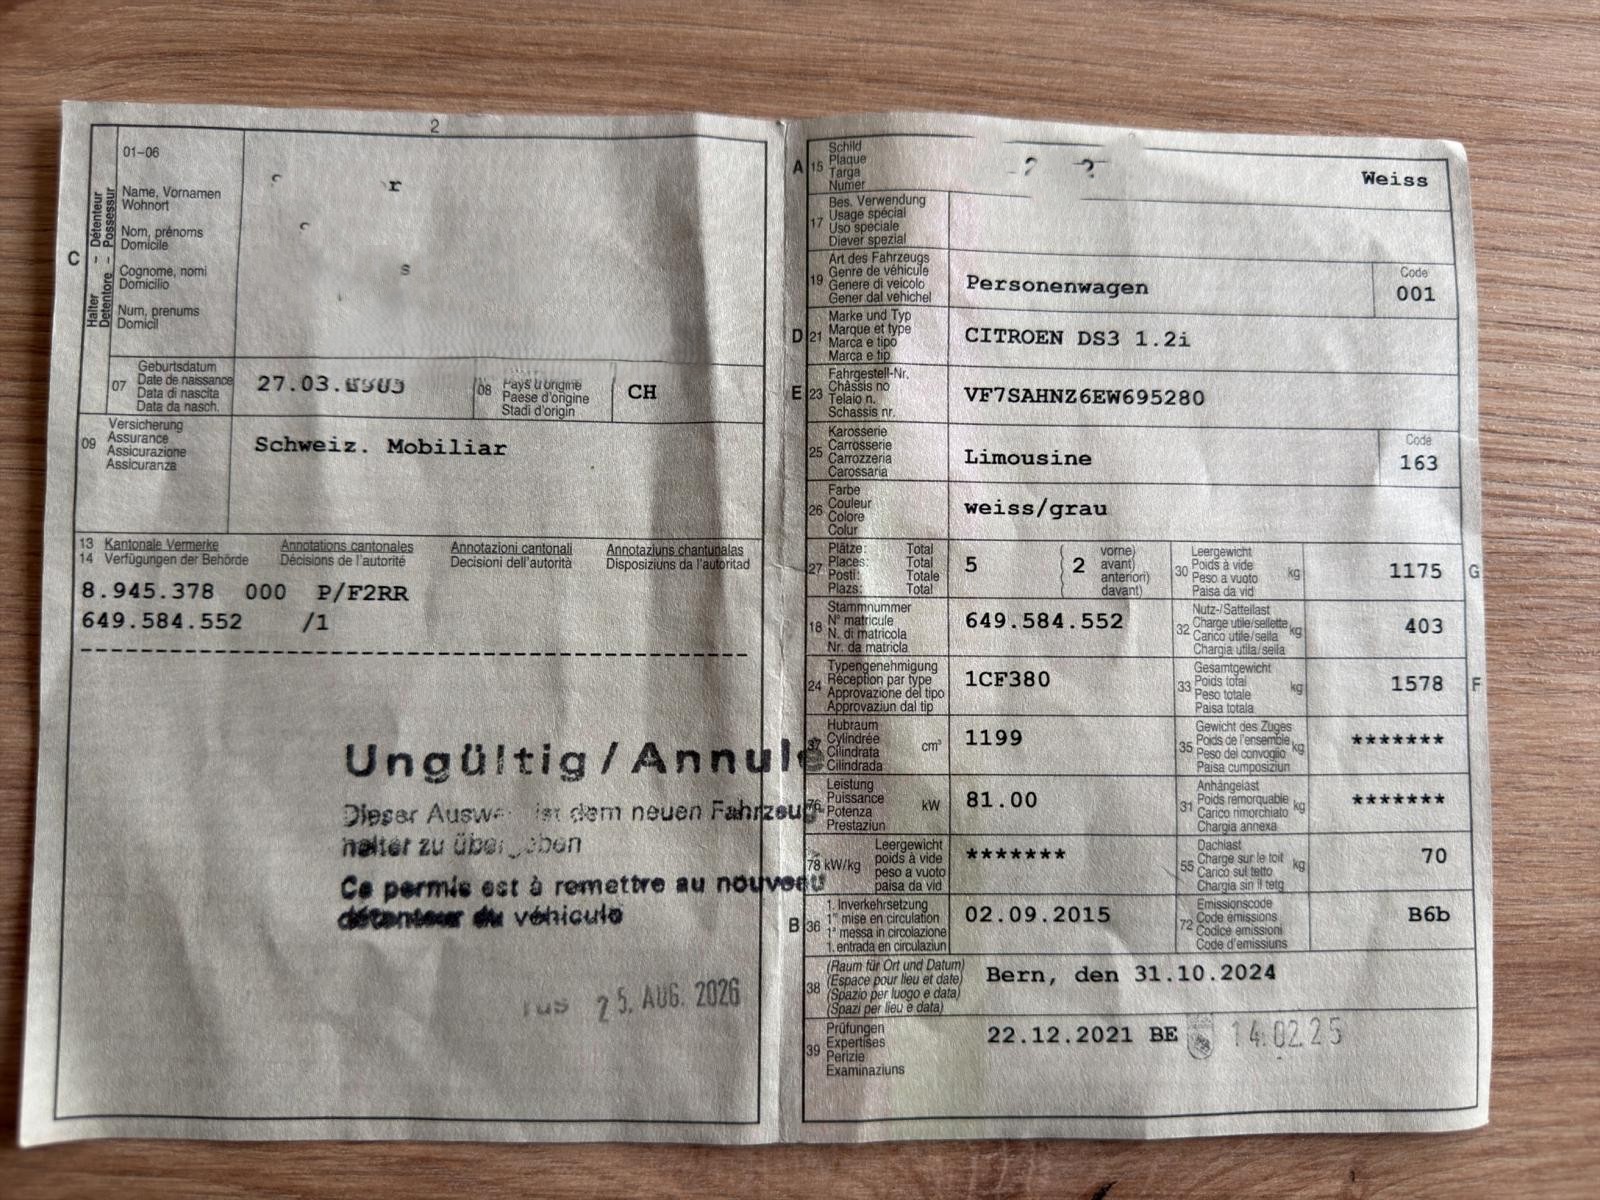 2
01–06
Name, Vornamen
Wohnort
Nom, prénoms
Domicile
Cognome, nomi
Domicilio
Num, prenums
Domicil
C
Halter – Détenteur
Detentore – Possessur
r
s
07
Geburtsdatum
Date de naissance
Data di nascita
Data da nasch.
27.03.
08
Pays d'origine
Paese d'origine
Stadi d'origin
CH
09
Versicherung
Assurance
Assicurazione
Assicuranza
Schweiz. Mobiliar
13 Kantonale Vermerke Annotations cantonales Annotazioni cantonali Annotaziuns chantunalas
14 Verfügungen der Behörde Décisions de l'autorité Decisioni dell'autorità Disposiziuns da l'autoritad
8.945.378 000 P/F2RR
649.584.552 /1
Ungültig/Annulé
Dieser Ausweis ist dem neuen Fahrzeug-
halter zu übergeben
Ce permis est à remettre au nouveau
détenteur du véhicule
25. AUG. 2026
A 15
Schild
Plaque
Targa
Numer
Weiss
17
Bes. Verwendung
Usage spécial
Uso speciale
Diever spezial
19
Art des Fahrzeugs
Genre de véhicule
Genere di veicolo
Gener dal vehichel
Personenwagen
Code
001
D 21
Marke und Typ
Marque et type
Marca e tipo
Marca e tip
CITROEN DS3 1.2i
E 23
Fahrgestell-Nr.
Châssis no
Telaio n.
Schassis nr.
VF7SAHNZ6EW695280
25
Karosserie
Carrosserie
Carrozzeria
Carossaria
Limousine
Code
163
26
Farbe
Couleur
Colore
Colur
weiss/grau
27
Plätze: Total
Places: Total
Posti: Totale
Plazs: Total
5
2
vorne)
avant)
anteriori)
davant)
30
Leergewicht
Poids à vide
Peso a vuoto
Paisa da vid
kg
1175
G
18
Stammnummer
N° matricule
N. di matricola
Nr. da matricla
649.584.552
32
Nutz-/Sattellast
Charge utile/sellette
Carico utile/sella
Chargia utila/sella
kg
403
24
Typengenehmigung
Réception par type
Approvazione del tipo
Approvaziun dal tip
1CF380
33
Gesamtgewicht
Poids total
Peso totale
Paisa totala
kg
1578
F
37
Hubraum
Cylindrée
Cilindrata
Cilindrada
cm³
1199
35
Gewicht des Zuges
Poids de l'ensemble
Peso del convoglio
Paisa cumposiziun
kg
*******
76
Leistung
Puissance
Potenza
Prestaziun
kW
81.00
31
Anhängelast
Poids remorquable
Carico rimorchiato
Chargia annexa
kg
*******
78 kW/kg
Leergewicht
poids à vide
peso a vuoto
paisa da vid
*******
55
Dachlast
Charge sur le toit
Carico sul tetto
Chargia sin il tetg
kg
70
B 36
1. Inverkehrsetzung
1re mise en circulation
1a messa in circolazione
1. entrada en circulaziun
02.09.2015
72
Emissionscode
Code émissions
Codice emissioni
Code d'emissiuns
B6b
38
(Raum für Ort und Datum)
(Espace pour lieu et date)
(Spazio per luogo e data)
(Spazi per lieu e data)
Bern, den 31.10.2024
39
Prüfungen
Expertises
Perizie
Examinaziuns
22.12.2021 BE
14.02.25